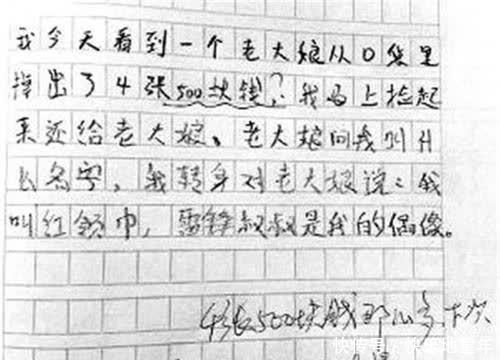 我今天看到一个老大娘从口袋里
掉出了4张500块钱？我马上捡起
来还给老大娘、老大娘问我叫什
么名字，我转身对老大娘说：我
叫红领巾，雷锋叔叔是我的偶像。
4张500块钱那么多，下次